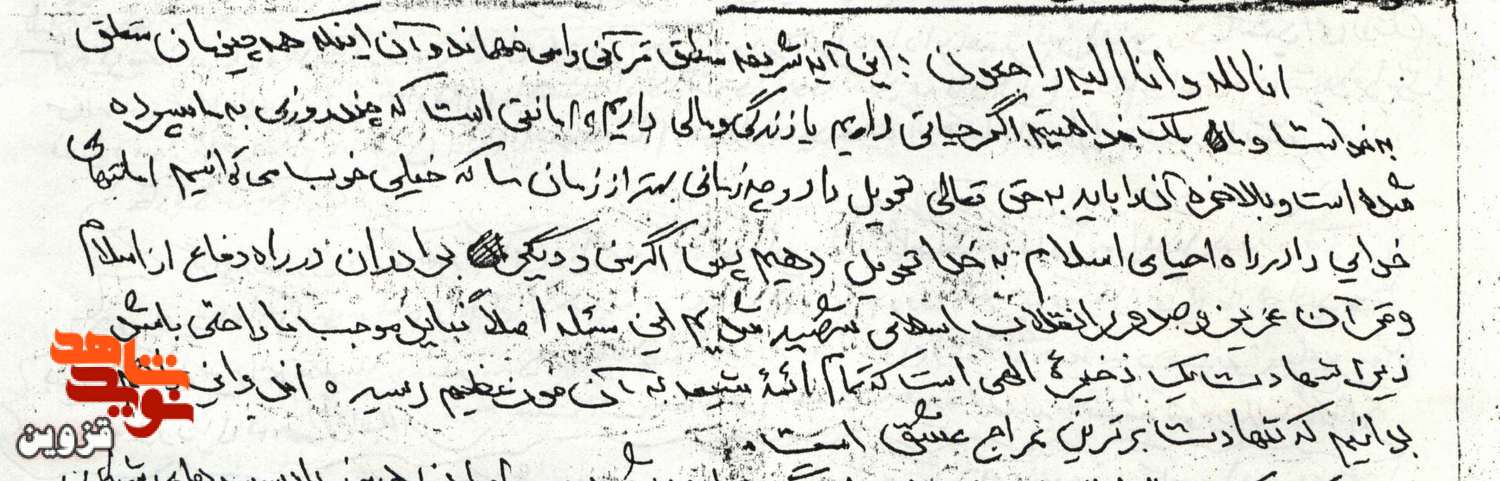 انا لله و انا الیه راجعون : این آیه شریفه منطق قرآنی را می فهماند و آن اینکه همه چیزمان متعلق
به خداست و ما ملک خدا هستیم اگر حیاتی داریم یا زندگی و مالی داریم، امانتی است که چند روزی به ما سپرده
شده است و بالاخره آن را باید به حق تعالی تحویل داد و چه زمانی بهتر از زمان ما که خیلی خوب می توانیم امانتهای
خدایی را در راه احیای اسلام به خدا تحویل دهیم پس اگر من و دیگر برادران در راه دفاع از اسلام
و قرآن عزیز و صدور انقلاب اسلامی شهید شدیم این مسئله اصلاً نباید موجب ناراحتی باشد
زیرا شهادت یک ذخیرهٔ الهی است که تمام ائمهٔ شیعه به آن فوز عظیم رسیده اند و این را
بدانیم که شهادت برترین معراج عشق است.
شاهد
نوید
قزوین